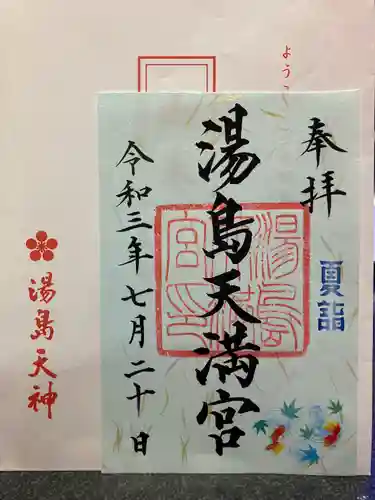 奉拝
夏詣
湯島天満宮
令和三年七月二十日
湯島天神
ようこ